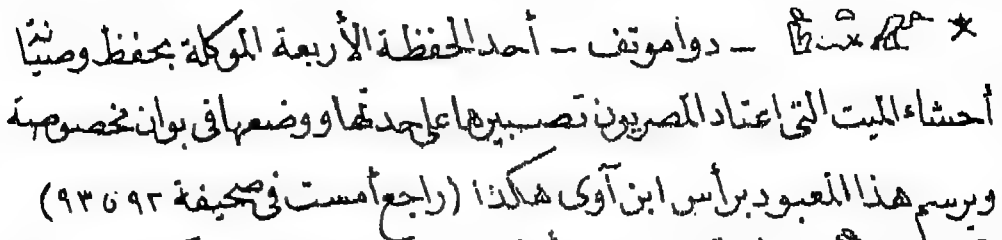 * – دواموتف – أحد الحفظة الأربعة الموكلة بحفظ وصيانة
أحشاء الميت التى اعتاد المصريون تصبيرها على حدتها ووضعها فى بوان مخصوصة
ويرسم هذا المعبود برأس ابن آوى هكذا (راجع أمست فى صحيفة ٩٢ و ٩٣)